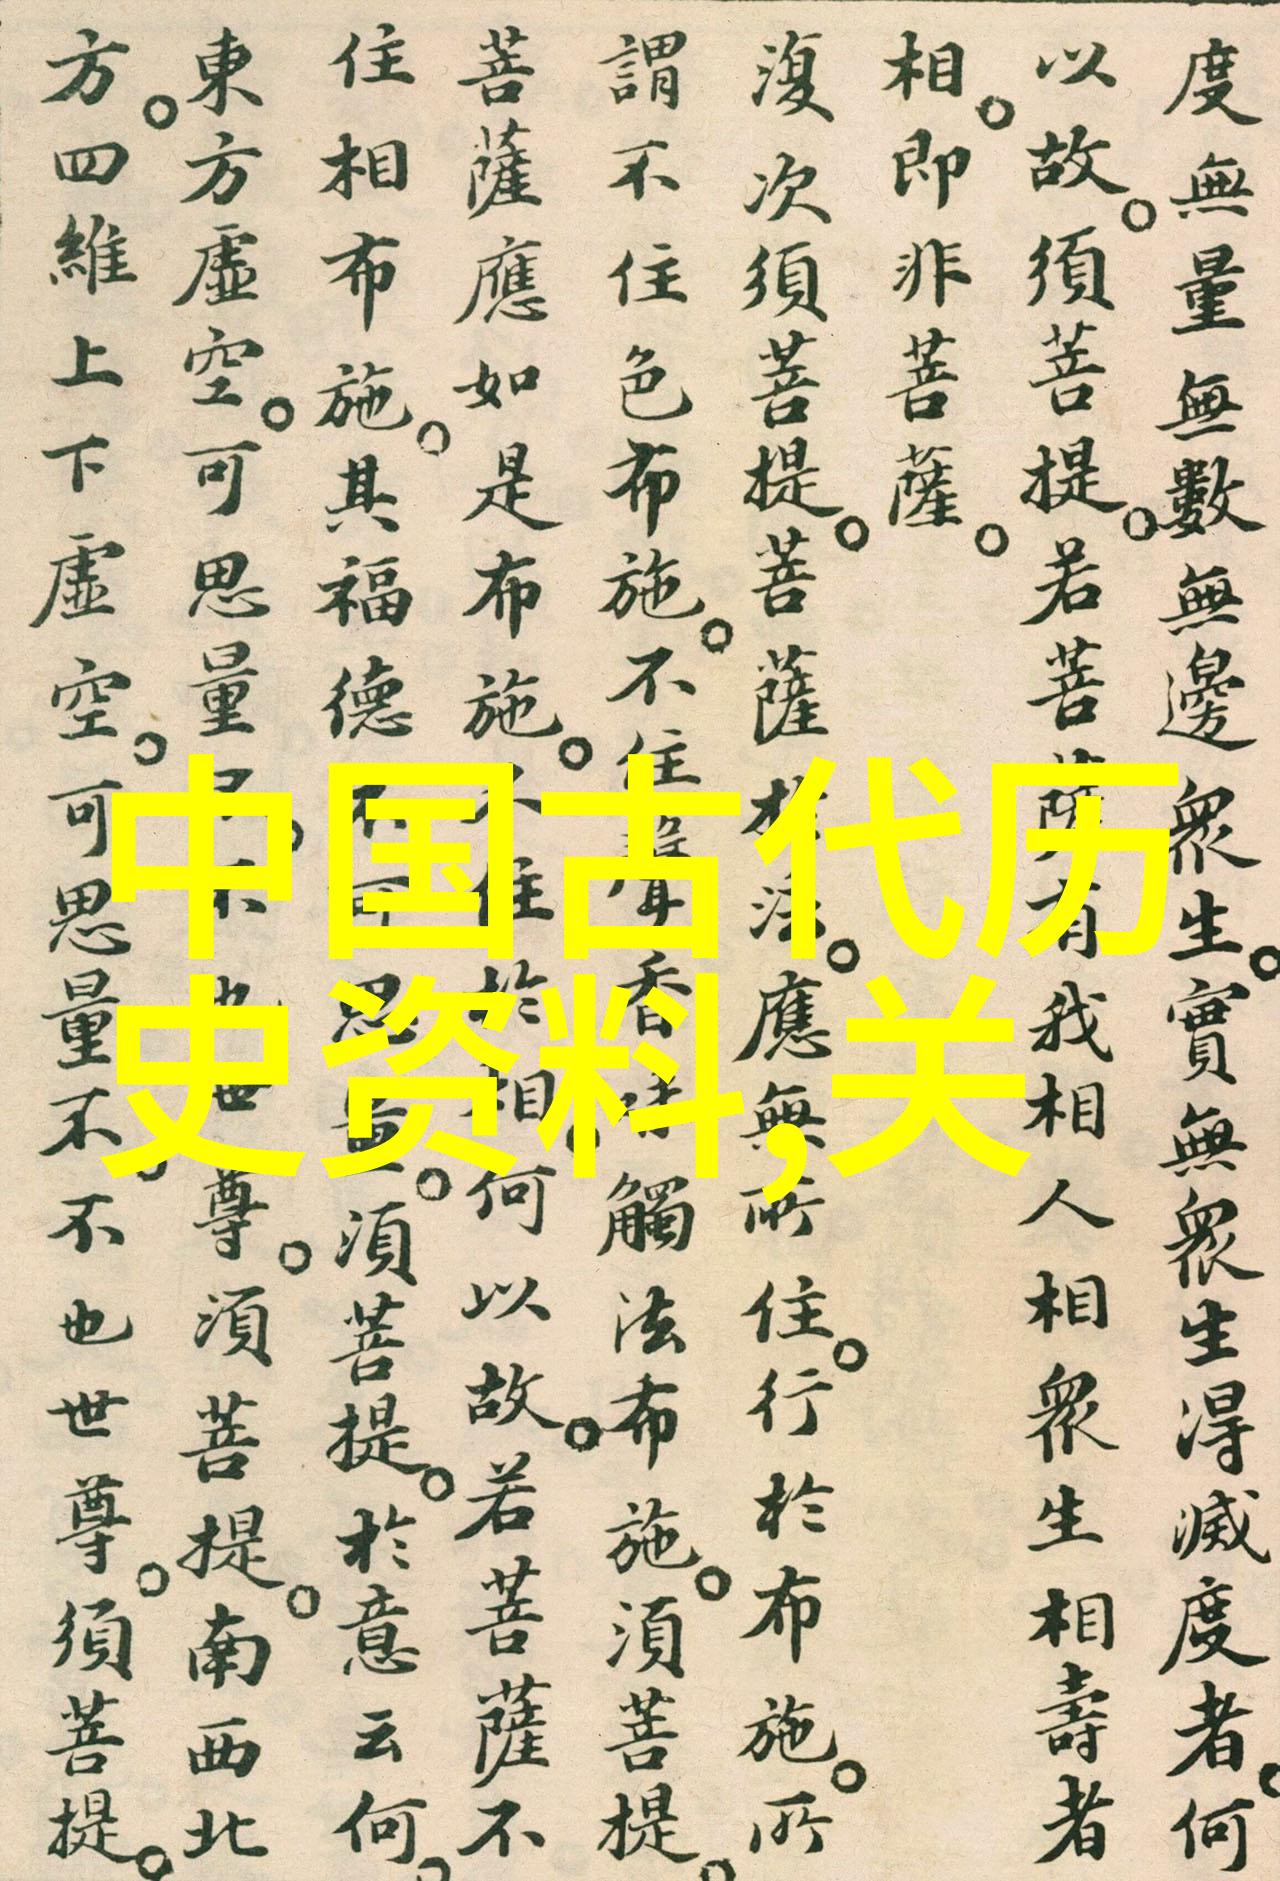 度無量無數無邊眾生。實無眾生得滅度者。何
以故。須菩提。若菩薩有我相人相眾生相壽者
相。即非菩薩。
復次須菩提。菩薩於法。應無所住。行於布施。所
謂不住色布施。不住聲香味觸法布施。須菩提。
菩薩應如是布施。不住於相。何以故。若菩薩不
住相布施。其福德不可思量。須菩提。於意云何。
東方虛空。可思量不。不也世尊。須菩提。南西北
方。四維上下虛空。可思量不。不也世尊。須菩提。
中国古代历
史资料,关